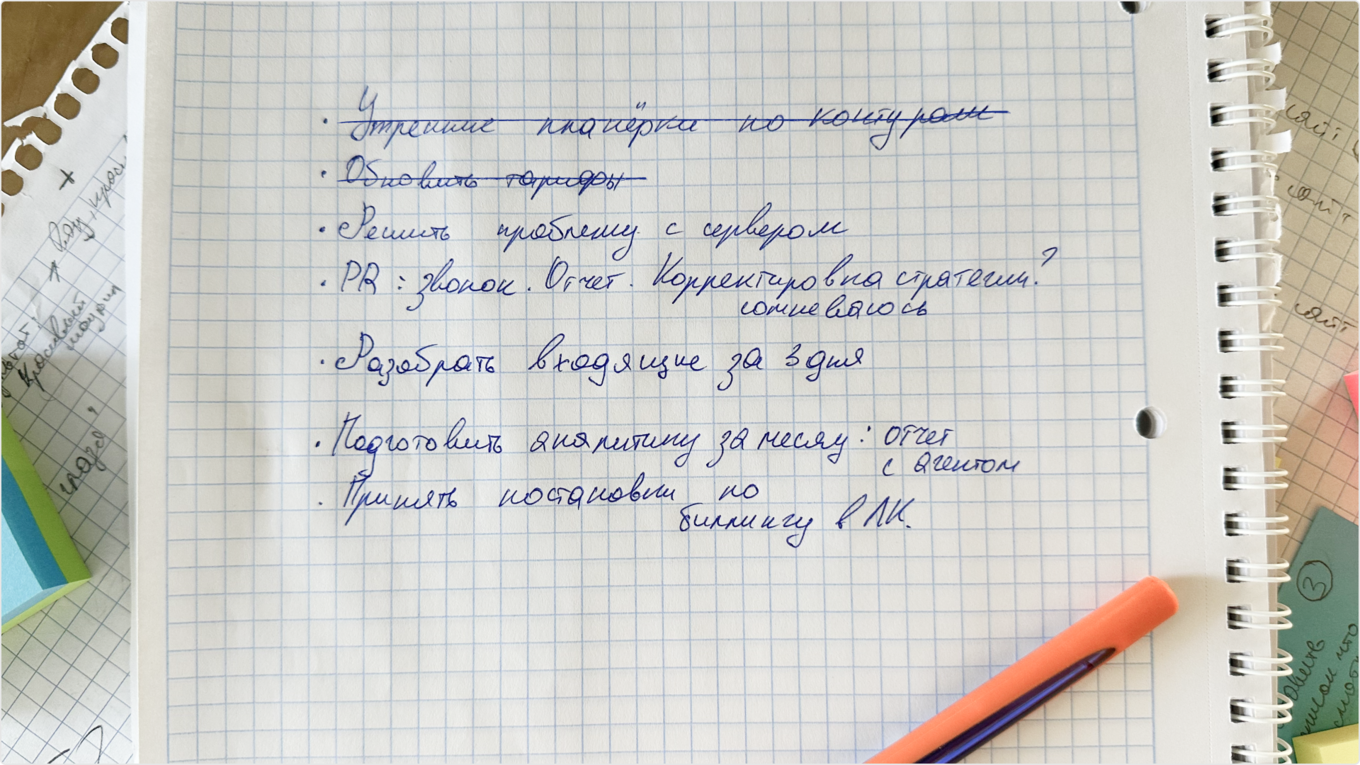 · Утренние планёрки по контурам
· Обновить тарифы
· Решить проблему с сервером
· PR: звонок. Отчет. Корректировка стратегии?
сомневаюсь
· Разобрать входящие за 3 дня
· Подготовить аналитику за месяц: отчет
с агентом
· Принять постановки по
биллингу в ЛК.
сайт
сайт
3